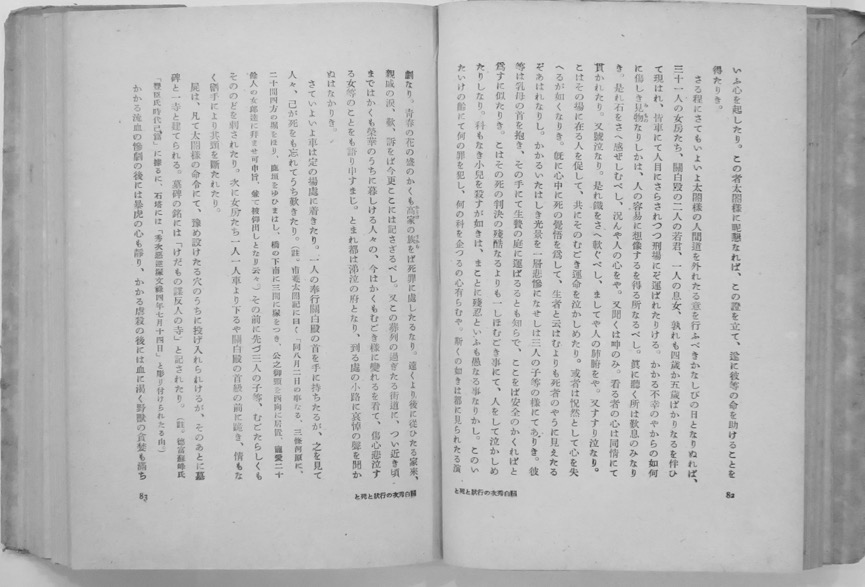 いふ心を起したり。この者太閤樣に昵懇なれば、この證を立て、遂に彼等の命を助けることを
得たりき。
さる程にさてもいよいよ太閤樣の人間道を外れたる意を行ふべきかなしびの日となりぬれば、
三十一人の女房たち、關白殿の二人の若君、一人の息女、孰れも四歳か五歳ばかりなるを伴ひ
て現はれ、皆車にて人目にさらされつつ刑場にぞ運ばれたりける。かかる不幸のやからの如何
に傷しき見物なりしかは、人の容易に想像するを得る所なるべし。眞に聽く所は歎息のみなり
き。是れ石をさへ感ぜしむべし、況んや人の心をや。又聞くは呻のみ。看る者の心は同情にて
貫かれたり。又號泣なり。是れ鐵をさへ軟ぐべし、ましてや人の肺腑をや。又すすり泣なり。
こはその場に在る人を促して、共にそのむごき運命を泣かしめたり。或者は恍然として心を失
へるが如くなりき。既に心中に死の覺悟を爲して、生者と云はむよりも死者のやうに見えたる
ぞあはれなりし。かかるいたはしき光景を一層悲慘になせしは三人の子等の樣にてありき。彼
等は乳母の首を抱き、その手にて生贄の庭に運ばるるとも知らで、ここをば安全のかくれがと
爲すに似たりき。こはその死の判決の殘酷なるよりも一しほむごき事にて、人をして泣かしめ
たりしなり。科もなき小兒を殺すが如きは、まことに殘忍といふも愚なる事なりかし。このい
たいけの齡にて何の罪を犯し、何の科を企つるの心有らむや。斯くの如きは都に見られたる演
82
關白秀次の行狀と死と
劇なり。靑春の花の盛のかくも高家の族をば死罪に處したるなり。遠くより後に從ひたる家來、
親戚の涙、歎、訴をば今更ここには記さざるべし。又この葬列の過ぎたる街道に、つい近き頃
まではかくも榮華のうちに暮しける人々の、今はかくもむごき樣に變れるを看て、傷心悲泣す
る女等のことをも語り申すまじ。とまれ都は涕泣の府となり、到る處の小路に哀悼の聲を聞か
ぬはなかりき。
さていよいよ車は定の場處に着きたり。一人の奉行關白殿の首を手に持ちたるが、之を見て
人々、己が死をも忘れてうち歎きたり。(註。甫菴太閤記に曰く「何八月二日の事なる、三條河原に、
二十間四方の堀をほり、鹿垣をゆひまはし、橋の下南に三間に塚をつき、公之御頸を西向に居置、寵愛二十
餘人の女郎達に拜ませ可申旨、兼て被仰出しとなり云々」)その前に先づ三人の子等、むごたらしくも
そののどを刺されたり。次に女房たち一人一人車より下るや關白殿の首級の前に跪き、情もな
く劊手により其頸を斷たれたり。
屍は、凡て太閤樣の命令にて、豫め設けたる穴のうちに投げ入れられけるが、そのあとに墓
碑と一寺と建てられる。墓碑の銘には「けだもの謀反人の寺」と記されたり。(註。德富蘇峰氏
「豐臣氏時代己篇」に據るに、石塔には「秀次惡逆塚文祿四年七月十四日」と彫り付けられたる由)
かかる流血の慘劇の後には暴虎の心も靜り、かかる虐殺の後には血に渴く野獸の貪婪も滿ち
關白秀次の行狀と死と
83